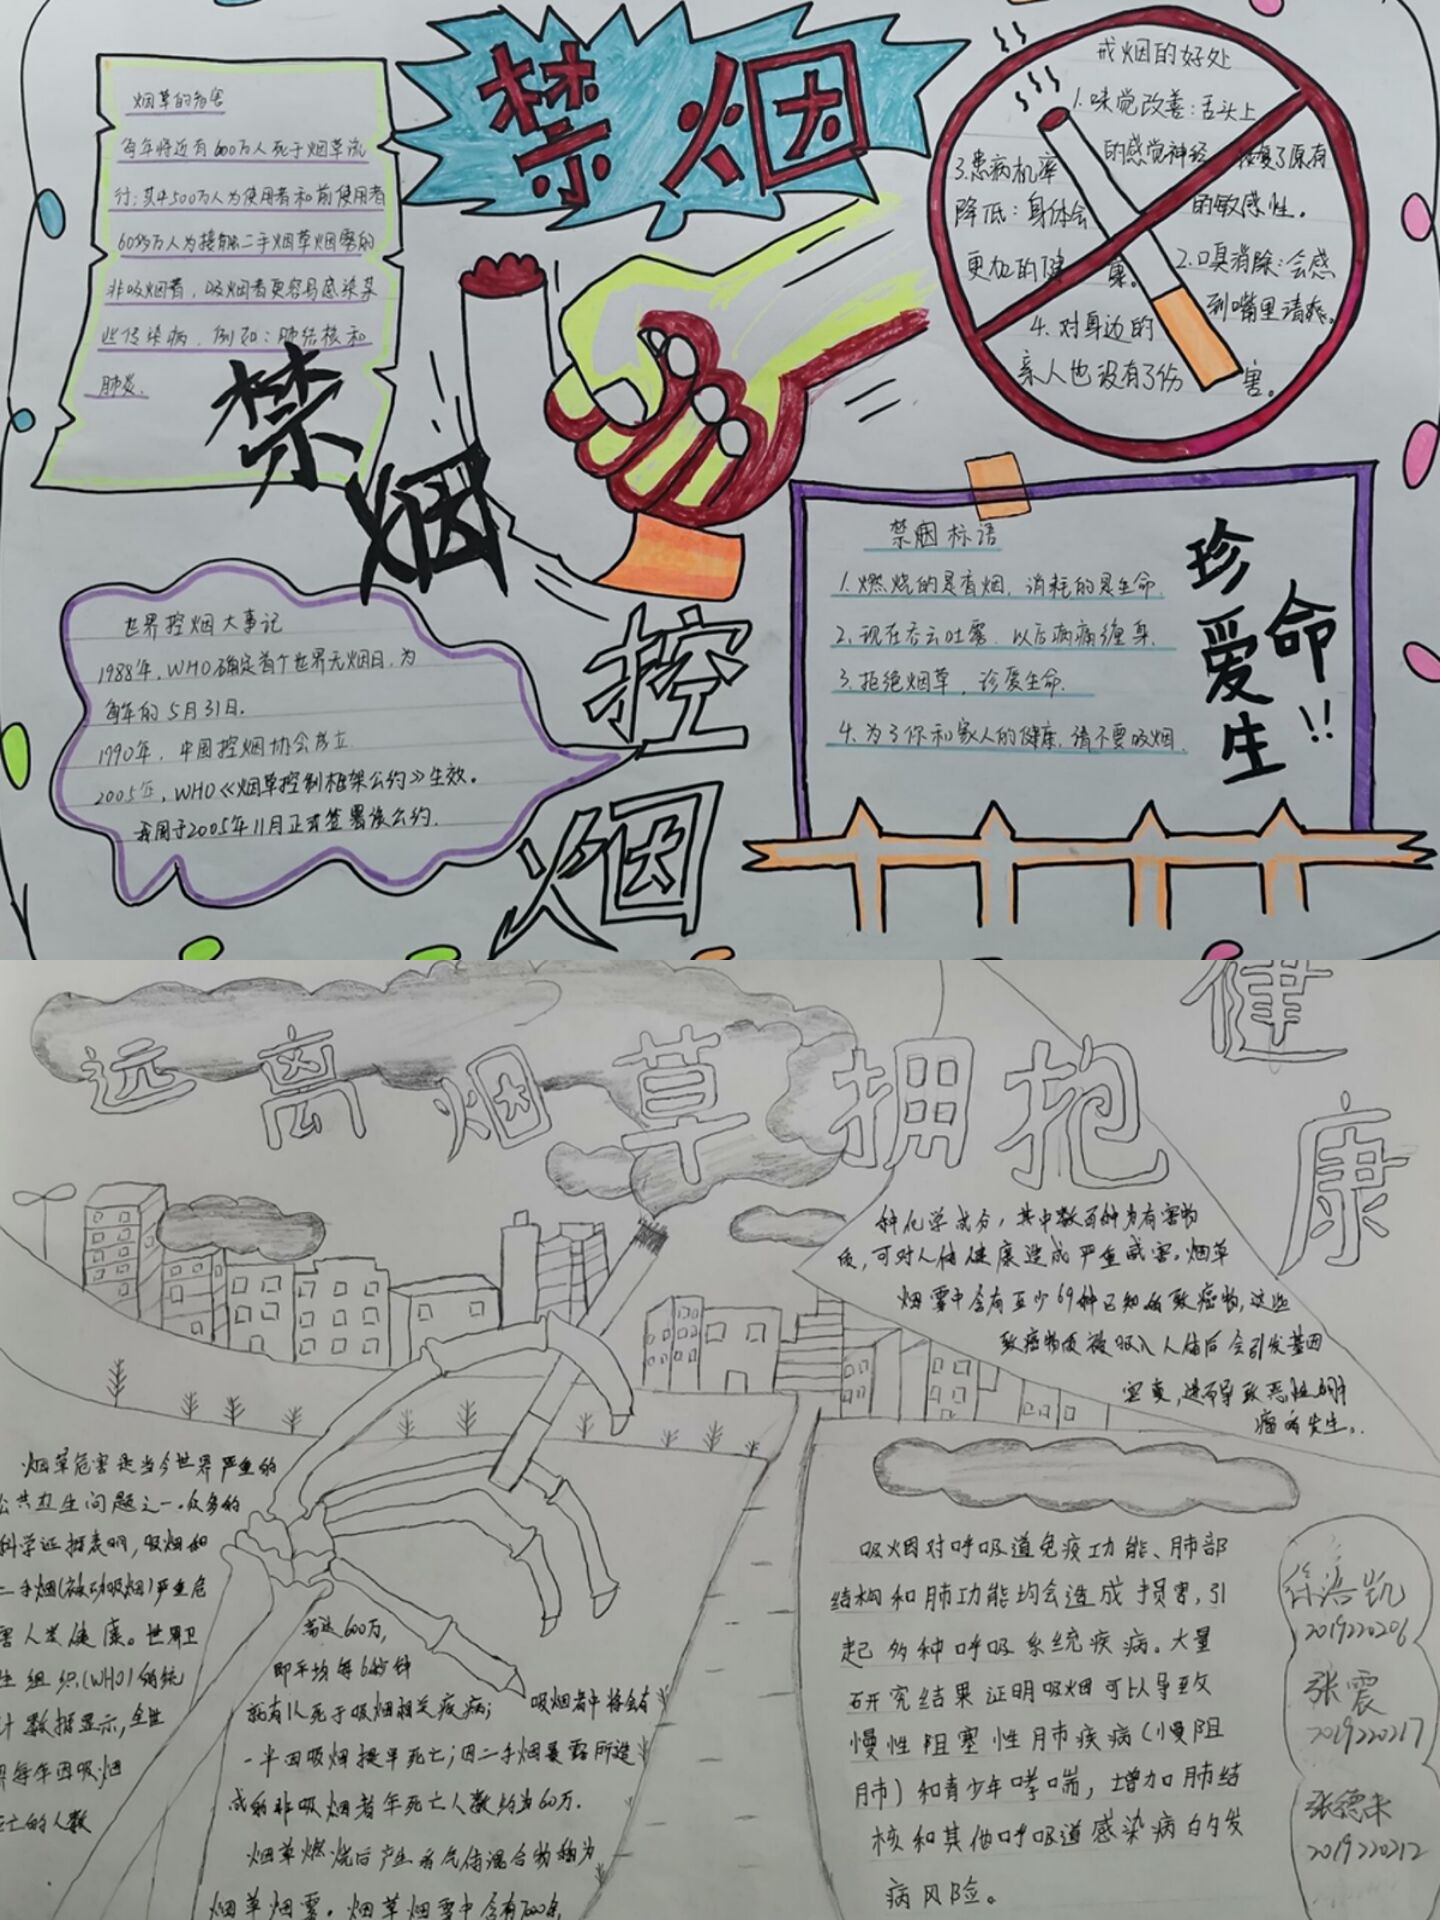 禁烟
烟草的危害
每年将近有600万人死于烟草流
行；其中500万人为使用者和前使用者
60多万人为接触二手烟草烟雾的
非吸烟者，吸烟者更容易感染某
些传染病，例如：肺结核和
肺炎.
禁
烟
控
烟
戒烟的好处
1.味觉改善：舌头上
的感觉神经 恢复了原有
的敏感性。
2.口臭消除：会感
到嘴里清爽。
3.患病机率
降低：身体会
更加的健 康。
4.对身边的
亲人也没有了伤 害。
世界控烟大事记
1988年，WHO确定首个世界无烟日，为
每年的5月31日.
1990年，中国控烟协会成立.
2005年，WHO《烟草控制框架公约》生效。
我国于2005年11月正式签署该公约.
禁烟标语
1.燃烧的是香烟，消耗的是生命.
2.现在吞云吐雾，以后病痛缠身.
3.拒绝烟草，珍爱生命.
4.为了你和家人的健康，请不要吸烟.
珍爱生命!!
远离烟草拥抱健康
烟草危害是当今世界严重的
公共卫生问题之一.众多的
科学证据表明，吸烟和
二手烟(被动吸烟)严重危
害人类健康。世界卫
生组织(WHO)的统
计数据显示，全世
界每年因吸烟
死亡的人数
高达600万，
即平均每6秒钟
就有1人死于吸烟相关疾病；吸烟者中将会有
一半因吸烟提早死亡；因二手烟暴露所造
成的非吸烟者年死亡人数约为60万.
烟草燃烧后产生的气体混合物称为
烟草烟雾。烟草烟雾中含有7000余
种化学成分，其中数百种为有害物
质，可对人体健康造成严重威害。烟草
烟雾中含有至少69种已知的致癌物，这些
致癌物质被吸入人体后会引发基因
突变，进而导致恶性肿
瘤的发生.
吸烟对呼吸道免疫功能、肺部
结构和肺功能均会造成损害，引
起多种呼吸系统疾病。大量
研究结果证明吸烟可以导致
慢性阻塞性肺疾病(慢阻
肺)和青少年哮喘，增加肺结
核和其他呼吸道感染病的发
病风险。
2019220206
张震
2019220217
2019220212